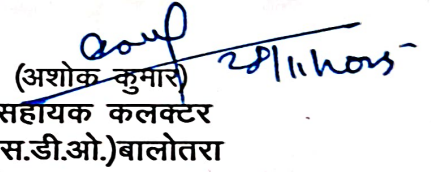 28/11/2025
(अशोक कुमार)
सहायक कलक्टर
स.डी.ओ.)बालोतरा